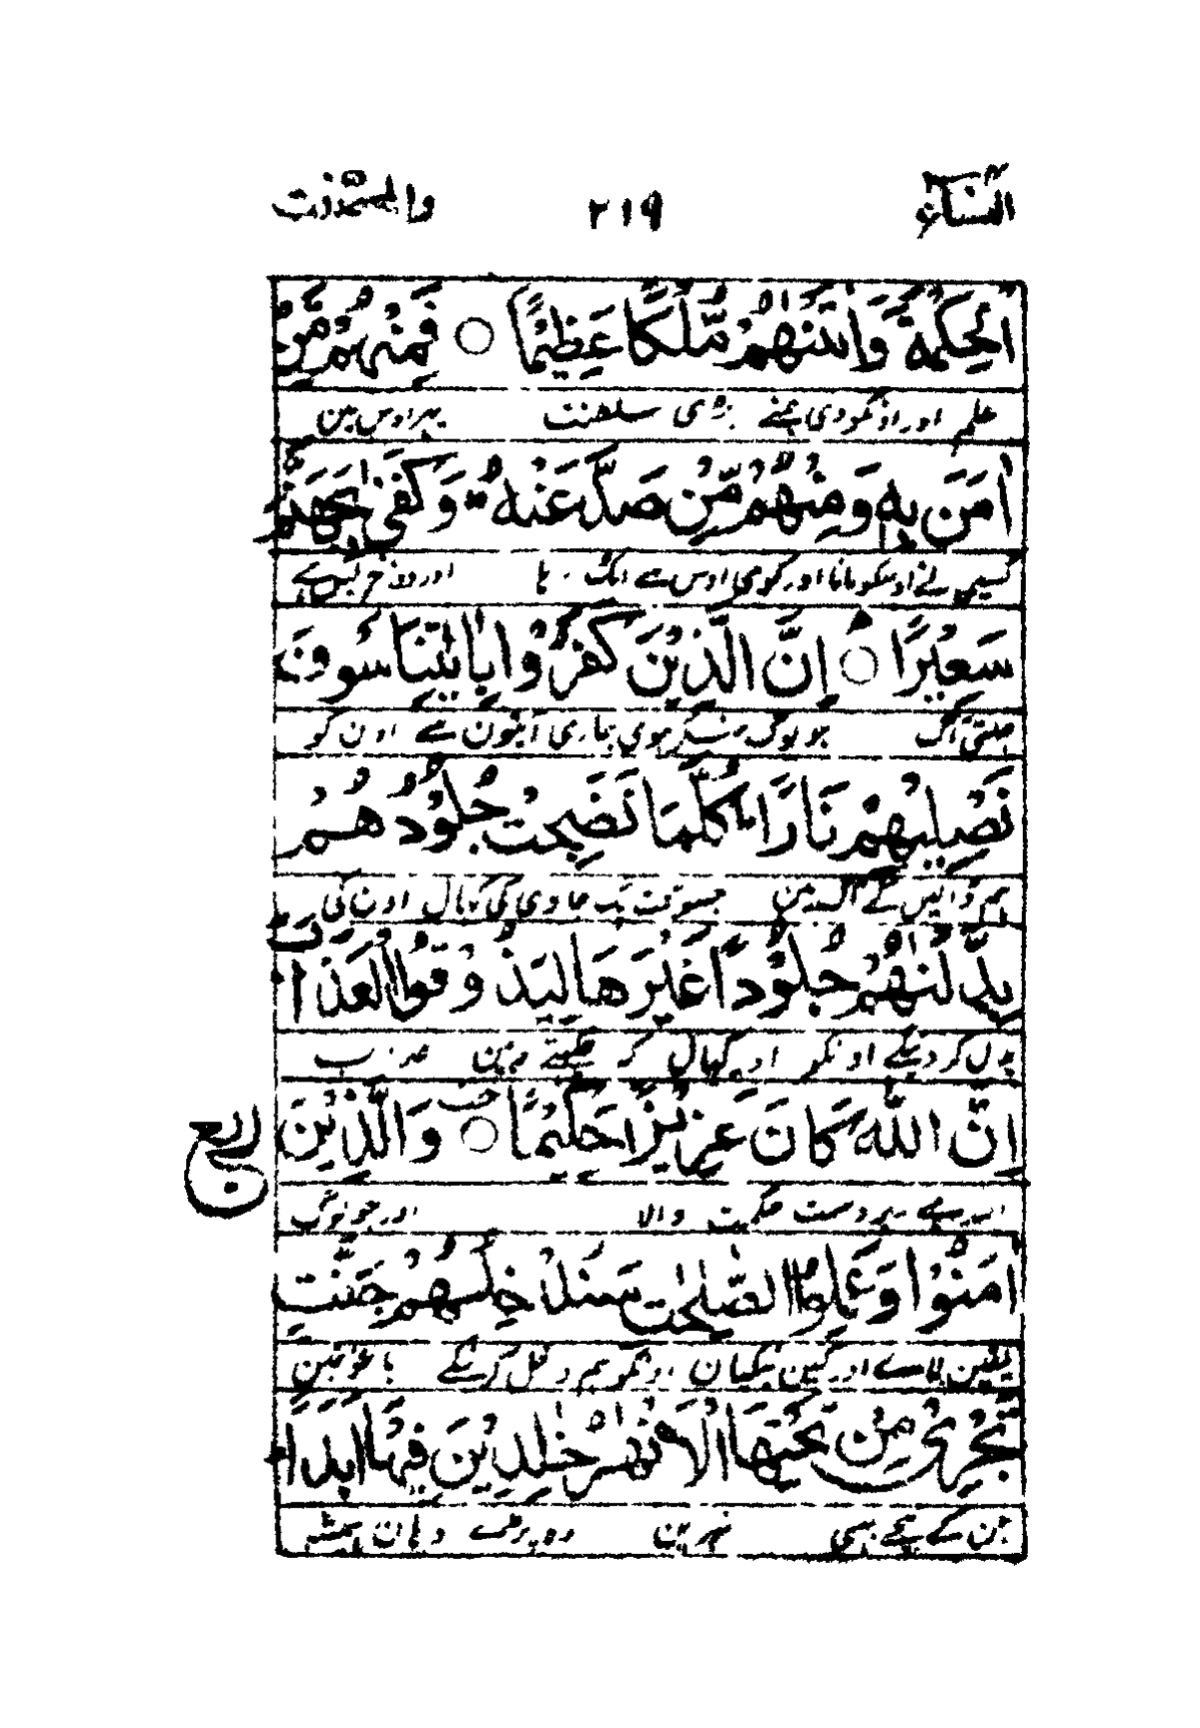 النساء ٢١٩ والمحصنت
الْحِكْمَةَ وَاٰتَيْنٰهُمْ مُّلْكًا عَظِيْمًا ○ فَمِنْهُمْ مَّنْ
علم اور اونکو دی ہمنے بڑی سلطنت پہر اوس مین
اٰمَنَ بِهٖ وَمِنْهُمْ مَّنْ صَدَّ عَنْهُ ؕ وَكَفٰى بِجَهَنَّمَ
کسی نے اوسکو مانا اور کوئی اوس سے اٹک رہا اور دوزخ بس ہے
سَعِيْرًا ○ اِنَّ الَّذِيْنَ كَفَرُوْا بِاٰيٰتِنَا سَوْفَ
جلتی آگ جو لوگ منکر ہوئی ہماری آیتون سے اون کو
نُصْلِيْهِمْ نَارًا ؕ كُلَّمَا نَضِجَتْ جُلُوْدُهُمْ
ہم ڈالیں گے آگ مین جسوقت پک جاوی گی کہال اون کی
بَدَّلْنٰهُمْ جُلُوْدًا غَيْرَهَا لِيَذُوْقُوا الْعَذَابَ
بدل کر دینگے اونکو اور کہال کہ چکہتے رہین عذاب
اِنَّ اللّٰهَ كَانَ عَزِيْزًا حَكِيْمًا ○ وَالَّذِيْنَ
اللہ ہے زبردست حکمت والا اور جو لوگ
اٰمَنُوْا وَعَمِلُوا الصّٰلِحٰتِ سَنُدْخِلُهُمْ جَنّٰتٍ
یقین لائے اور کین نیکیان اونکو ہم داخل کرینگے باغونمین
تَجْرِيْ مِنْ تَحْتِهَا الْاَنْهٰرُ خٰلِدِيْنَ فِيْهَا اَبَدًا
جن کے نیچے بہتی نہرین رہ پڑے وہان ہمیشہ